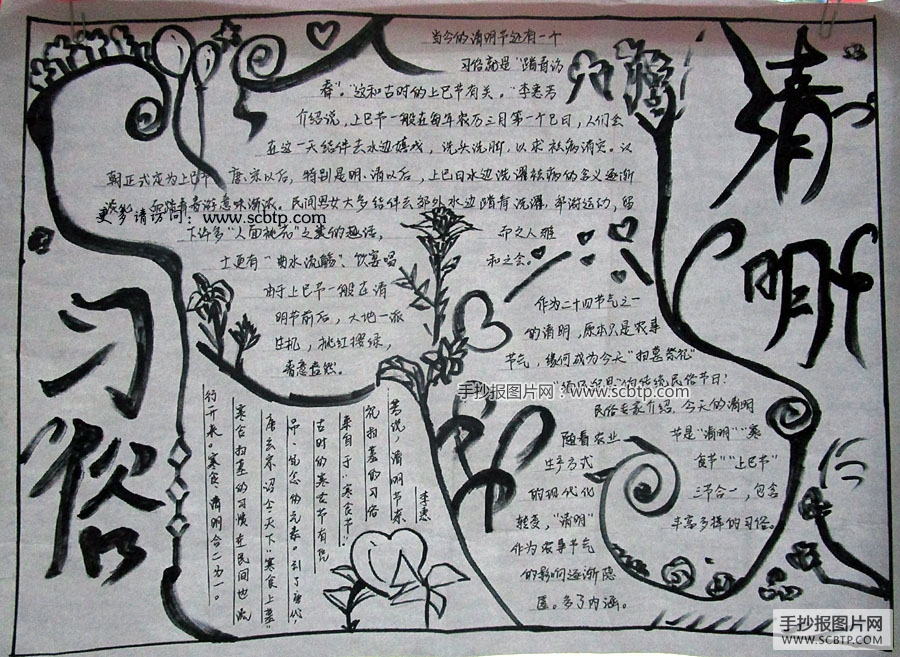 清明
习俗
当今的清明节还有一个
习俗就是“踏青访
春”。“这和古时的上巳节有关。”李惠芳
介绍说，上巳节一般在每年农历三月第一个巳日，人们会
在这一天结伴去水边嬉戏，洗头洗脚，以求祛病消灾。汉
朝正式定为上巳节 唐宋以后，特别是明、清以后，上巳日水边洗濯祛病的含义逐渐
民间男女大多结伴去郊外水边踏青洗濯、郊游运动，留
更多请访问：www.scbtp.com
下许多“人面桃花”之类的趣话，
士更有“曲水流觞”、饮宴唱
和之会。
由于上巳节一般在清
明节前后，大地一派
生机，桃红柳绿，
春意盎然。
作为二十四节气之一
的清明，原本只是农事
节气，缘何成为今天“扫墓祭祀”
的传统民俗节日？
手抄报图片网：www.scbtp.com
民俗专家介绍，今天的清明
节是“清明”“寒
食节”“上巳节”
三节合一，包含
丰富多样的习俗。
随着农业
生产方式
的现代化
转变，“清明”
作为农事节气
的影响逐渐隐
匿。多了内涵。
李惠
芳说，清明节祭
祀扫墓的习俗
来自于“寒食节”
古时的寒食节有纪
唐玄宗诏令天下“寒食上墓”
寒食扫墓的习惯在民间也流
行开来。寒食、清明合二为一。
手抄报图片网
WWW.SCBTP.COM